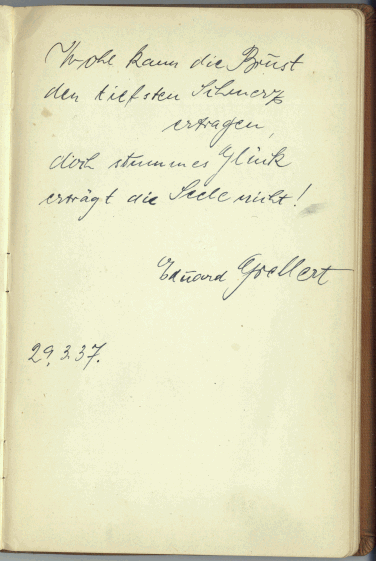 Wohl kann die Brust
den tiefsten Schmerz
ertragen,
doch stummes Glück
erträgt die Seele nicht!
Eduard Grellert
29.3.37.